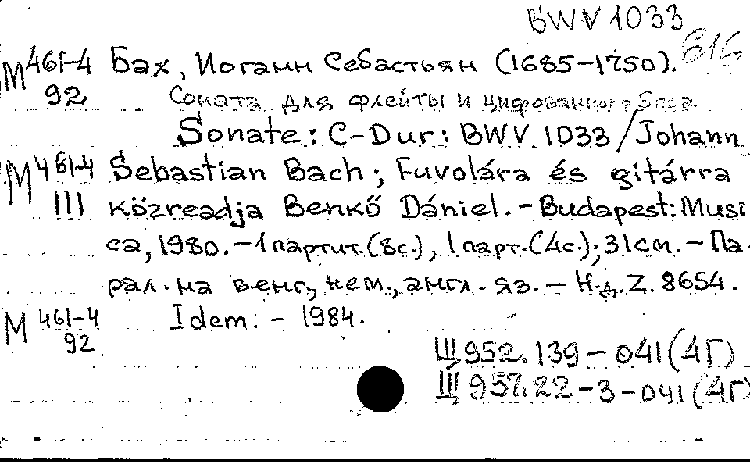 BWV 1033
816
M 461-4 Бах, Иоганн Себастьян (1685-1750).
92 Соната для флейты и цифрованного баса.
Sonate: C-Dur: BWV 1033/Johann
M 461-4 Sebastian Bach; Fuvolára és gitárra
III közreadja Benkő Dániel. - Budapest: Musi
ca, 1980. - 1 партит. (8с.), 1 парт. (4с.); 31см. - Па-
рал. на венг., нем., англ. яз. - Н.д. Z. 8654.
M 461-4 Idem. - 1984.
92
Щ 952.139-041(4Г)
Щ 957.22-3-041(4Г)